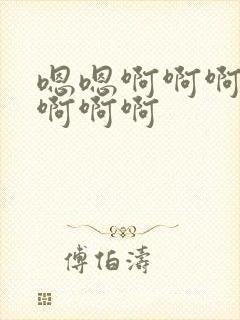 嗯嗯啊啊啊
啊啊啊
傅伯濤